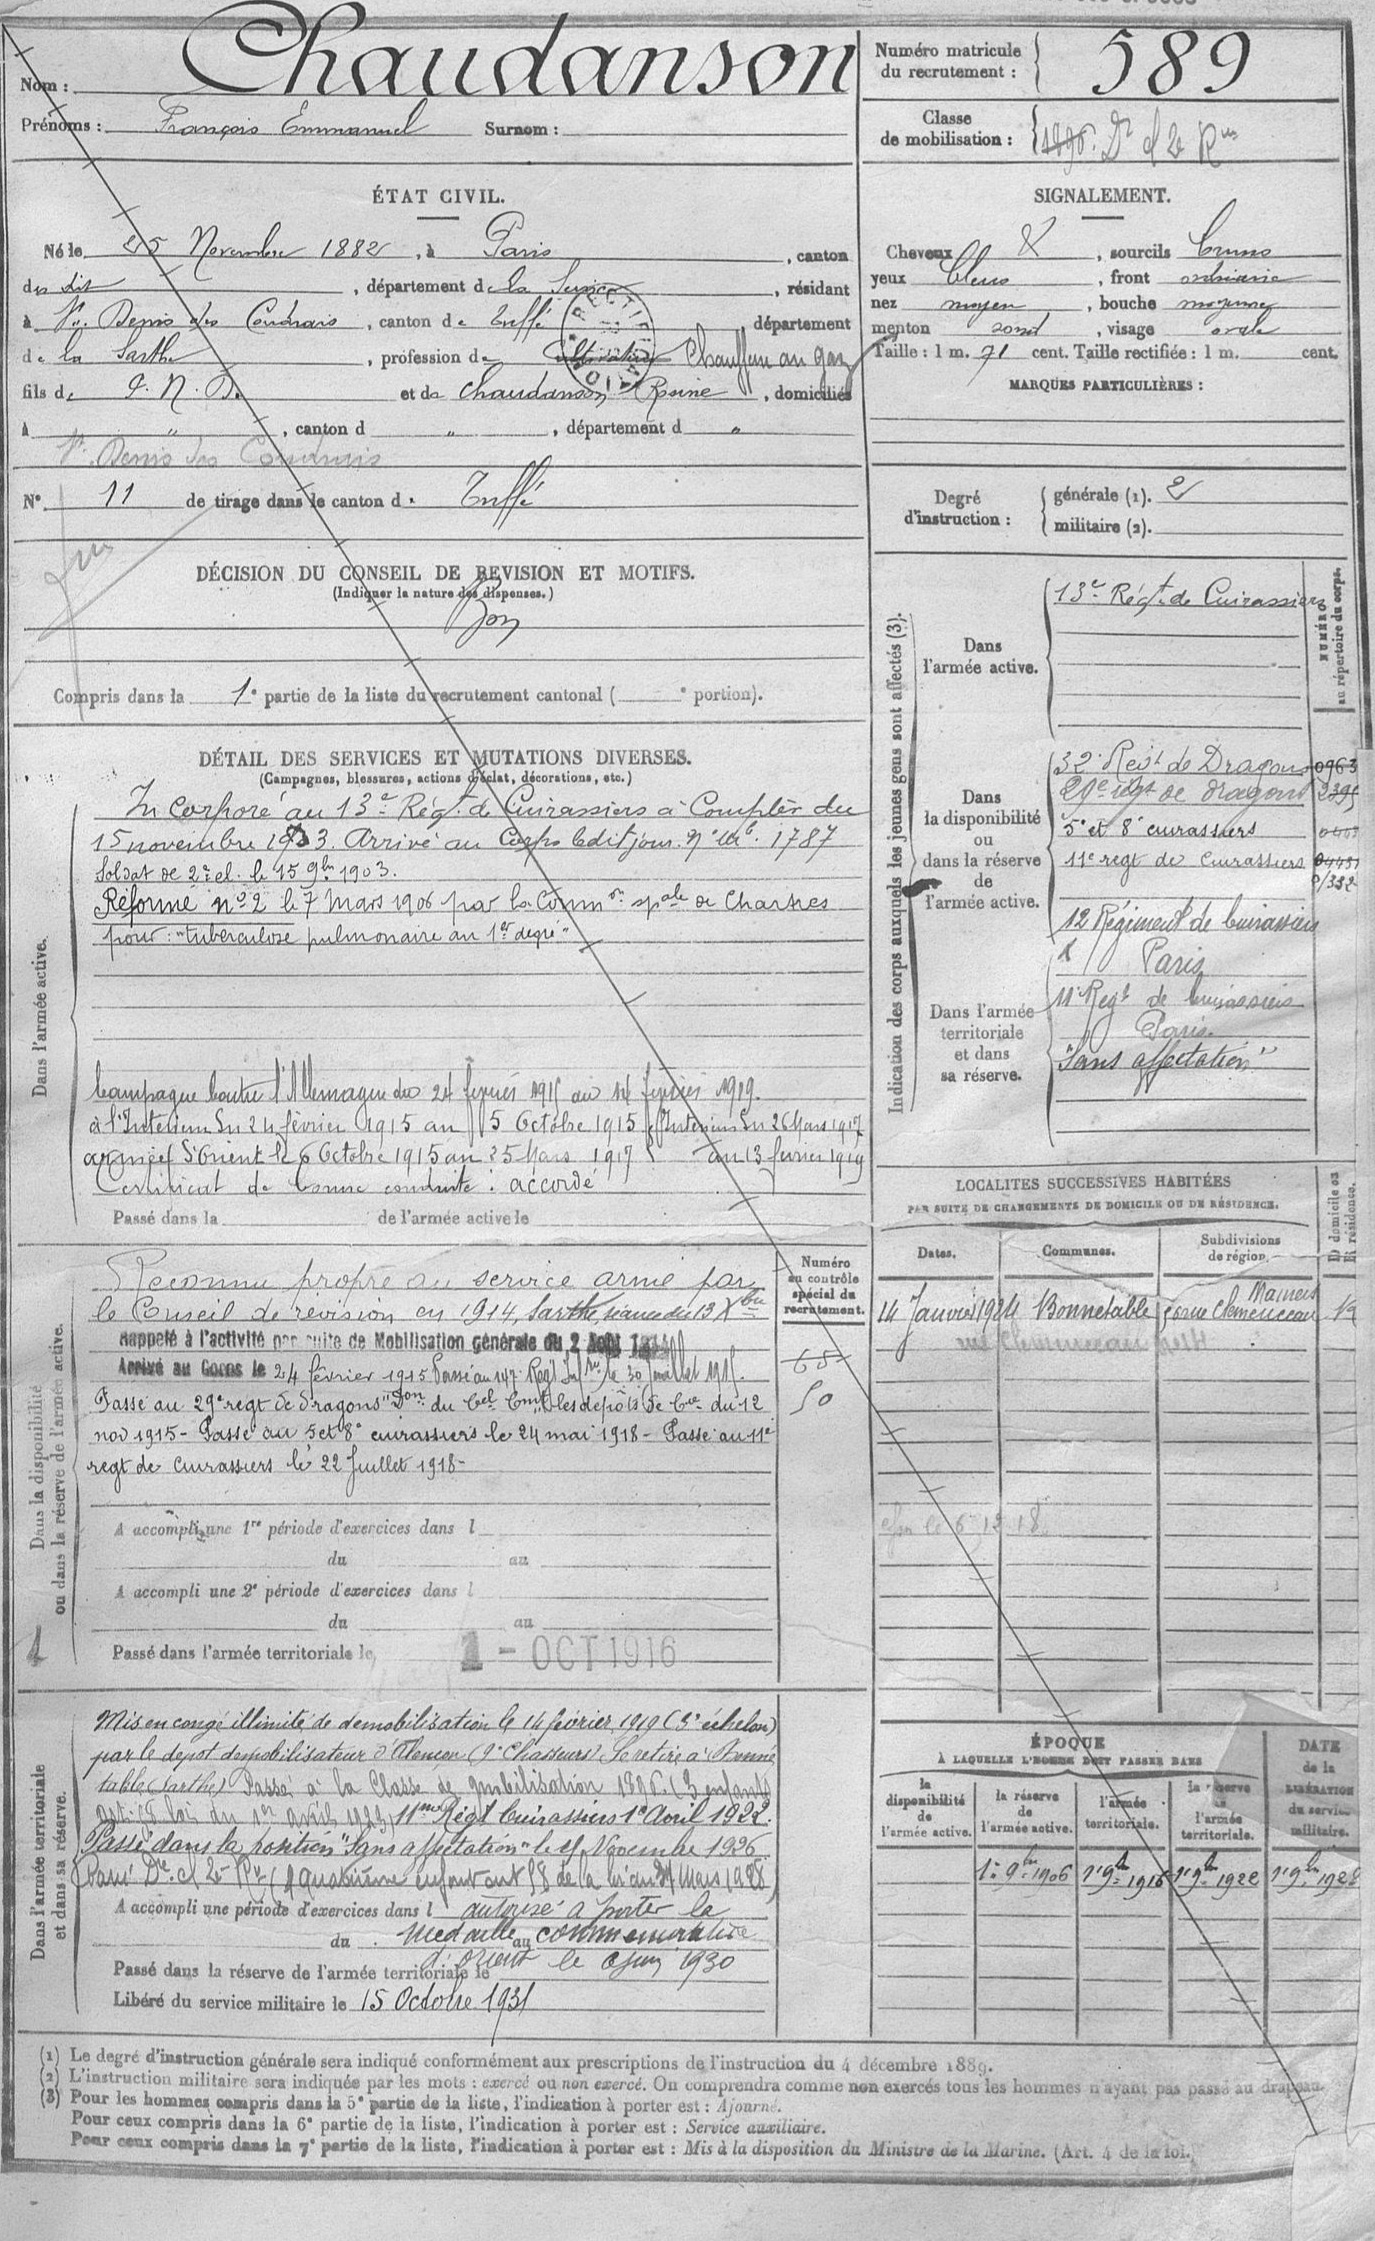 Nom : Chaudanson
Prénoms : François Emmanuel Surnom :
Numéro matricule du recrutement : 589
Classe de mobilisation : 1896. Dre cl 2e Rve
ÉTAT CIVIL.
Né le 25 Novembre 1882, à Paris, canton
du dit, département de la Seine, résidant
à St. Denis des Coudrais, canton de Tuffé département
de la Sarthe, profession de cultivateur Chauffeur au gaz
fils de P. N. D. et de Chaudanson Rosine, domiciliés
à ", canton d ", département d "
St. Denis des Coudrais
N° 11 de tirage dans le canton de Tuffé
SIGNALEMENT.
Cheveux &, sourcils bruns
yeux bleus, front ordinaire
nez moyen, bouche moyenne
menton rond, visage ovale
Taille : 1 m. 71 cent. Taille rectifiée : 1 m. cent.
MARQUES PARTICULIÈRES :
Degré d'instruction : générale (1). 2
militaire (2).
DÉCISION DU CONSEIL DE REVISION ET MOTIFS.
(Indiquer la nature des dispenses.)
Bon
Compris dans la 1e partie de la liste du recrutement cantonal ( e portion).
DÉTAIL DES SERVICES ET MUTATIONS DIVERSES.
(Campagnes, blessures, actions d'éclat, décorations, etc.)
Dans l'armée active.
Incorporé au 13e Régt. de Cuirassiers à Compter du
15 novembre 1903. Arrivé au Corps ledit jour. n° mle. 1787
Soldat de 2e cl. le 15 9bre 1903.
Réformé n° 2 le 7 Mars 1906 par la Common spale de Chartres
pour : "tuberculose pulmonaire au 1er degré"
Campagne contre l'Allemagne du 24 février 1915 au 14 février 1919.
à l'Intérieur du 24 février 1915 au 5 Octobre 1915 Intérieur du 26 Mars 1917
armée d'Orient le 6 Octobre 1915 au 25 Mars 1917 au 13 février 1919
Certificat de bonne conduite : accordé
Passé dans la de l'armée active le
Indication des corps auxquels les jeunes gens sont affectés (3).
NUMÉRO au répertoire du corps.
Dans l'armée active.
13e Régt. de Cuirassiers
Dans la disponibilité ou dans la réserve de l'armée active.
32e Régt de Dragons 0963
29e régt de dragons 2395
5e et 8e cuirassiers
11e regt de cuirassiers
12 Régiment de Cuirassiers
Paris
Dans l'armée territoriale et dans sa réserve.
11e Regt de Cuirassiers
Paris.
"Sans affectation"
LOCALITES SUCCESSIVES HABITÉES
PAR SUITE DE CHANGEMENTS DE DOMICILE OU DE RÉSIDENCE.
Dates. Communes. Subdivisions de région. D domicile ou R résidence.
14 Janvier 1924 Bonnetable rue Clemenceau Mamers R
rue Clemenceau
6 12 18
Dans la disponibilité ou dans la réserve de l'armée active.
Numéro au contrôle spécial du recrutement.
50
Reconnu propre au service armé par
le Conseil de révision en 1914, Sarthe, séance du 13 Xbre
Rappelé à l'activité par suite de Mobilisation générale du 2 Août 1914
Arrivé au Corps le 24 février 1915 Passé au 147e Régt Infrie le 30 Juillet 1915.
Passé au 29e regt de dragons "Don du Cel Cmt les dépôts de Cie" du 12
nov 1915 - Passé au 5 et 8e cuirassiers le 24 mai 1918 - Passé au 11e
regt de cuirassiers le 22 Juillet 1918 -
A accompli une 1re période d'exercices dans l
du au
A accompli une 2e période d'exercices dans l
du au
Passé dans l'armée territoriale le 1 - OCT 1916
Dans l'armée territoriale et dans sa réserve.
Mis en congé illimité de démobilisation le 14 février 1919 (3e échelon)
par le dépôt démobilisateur d'Alençon (2e Chasseurs). Se retire à Bonné
table (Sarthe) Passé à la Classe de mobilisation 1896. (3 enfants
art. 58 loi du 1er avril 1923) 11me Régt Cuirassiers 1er Avril 1922.
Passé dans la position "Sans affectation" le Novembre 1926
Passé Dre cl 2e Rve (quatrième enfant art 58 de la loi du 31 Mars 1928)
A accompli une période d'exercices dans l autorisé à porter la
du médaille au commemorative
Passé dans la réserve de l'armée territoriale le d'Orient le 1930
Libéré du service militaire le 15 Octobre 1931
ÉPOQUE
À LAQUELLE L'HOMME DOIT PASSER DANS
la disponibilité de l'armée active. la réserve de l'armée active. l'armée territoriale. la réserve de l'armée territoriale. DATE de la LIBÉRATION du service militaire.
1er 9bre 1906 1er 9bre 1916 1er 9bre 1922 1er 9bre 1928
(1) Le degré d'instruction générale sera indiqué conformément aux prescriptions de l'instruction du 4 décembre 1889.
(2) L'instruction militaire sera indiquée par les mots : exercé ou non exercé. On comprendra comme non exercés tous les hommes n'ayant pas passé au drapeau.
(3) Pour les hommes compris dans la 5e partie de la liste, l'indication à porter est : Ajourné.
Pour ceux compris dans la 6e partie de la liste, l'indication à porter est : Service auxiliaire.
Pour ceux compris dans la 7e partie de la liste, l'indication à porter est : Mis à la disposition du Ministre de la Marine. (Art. 4 de la loi.)